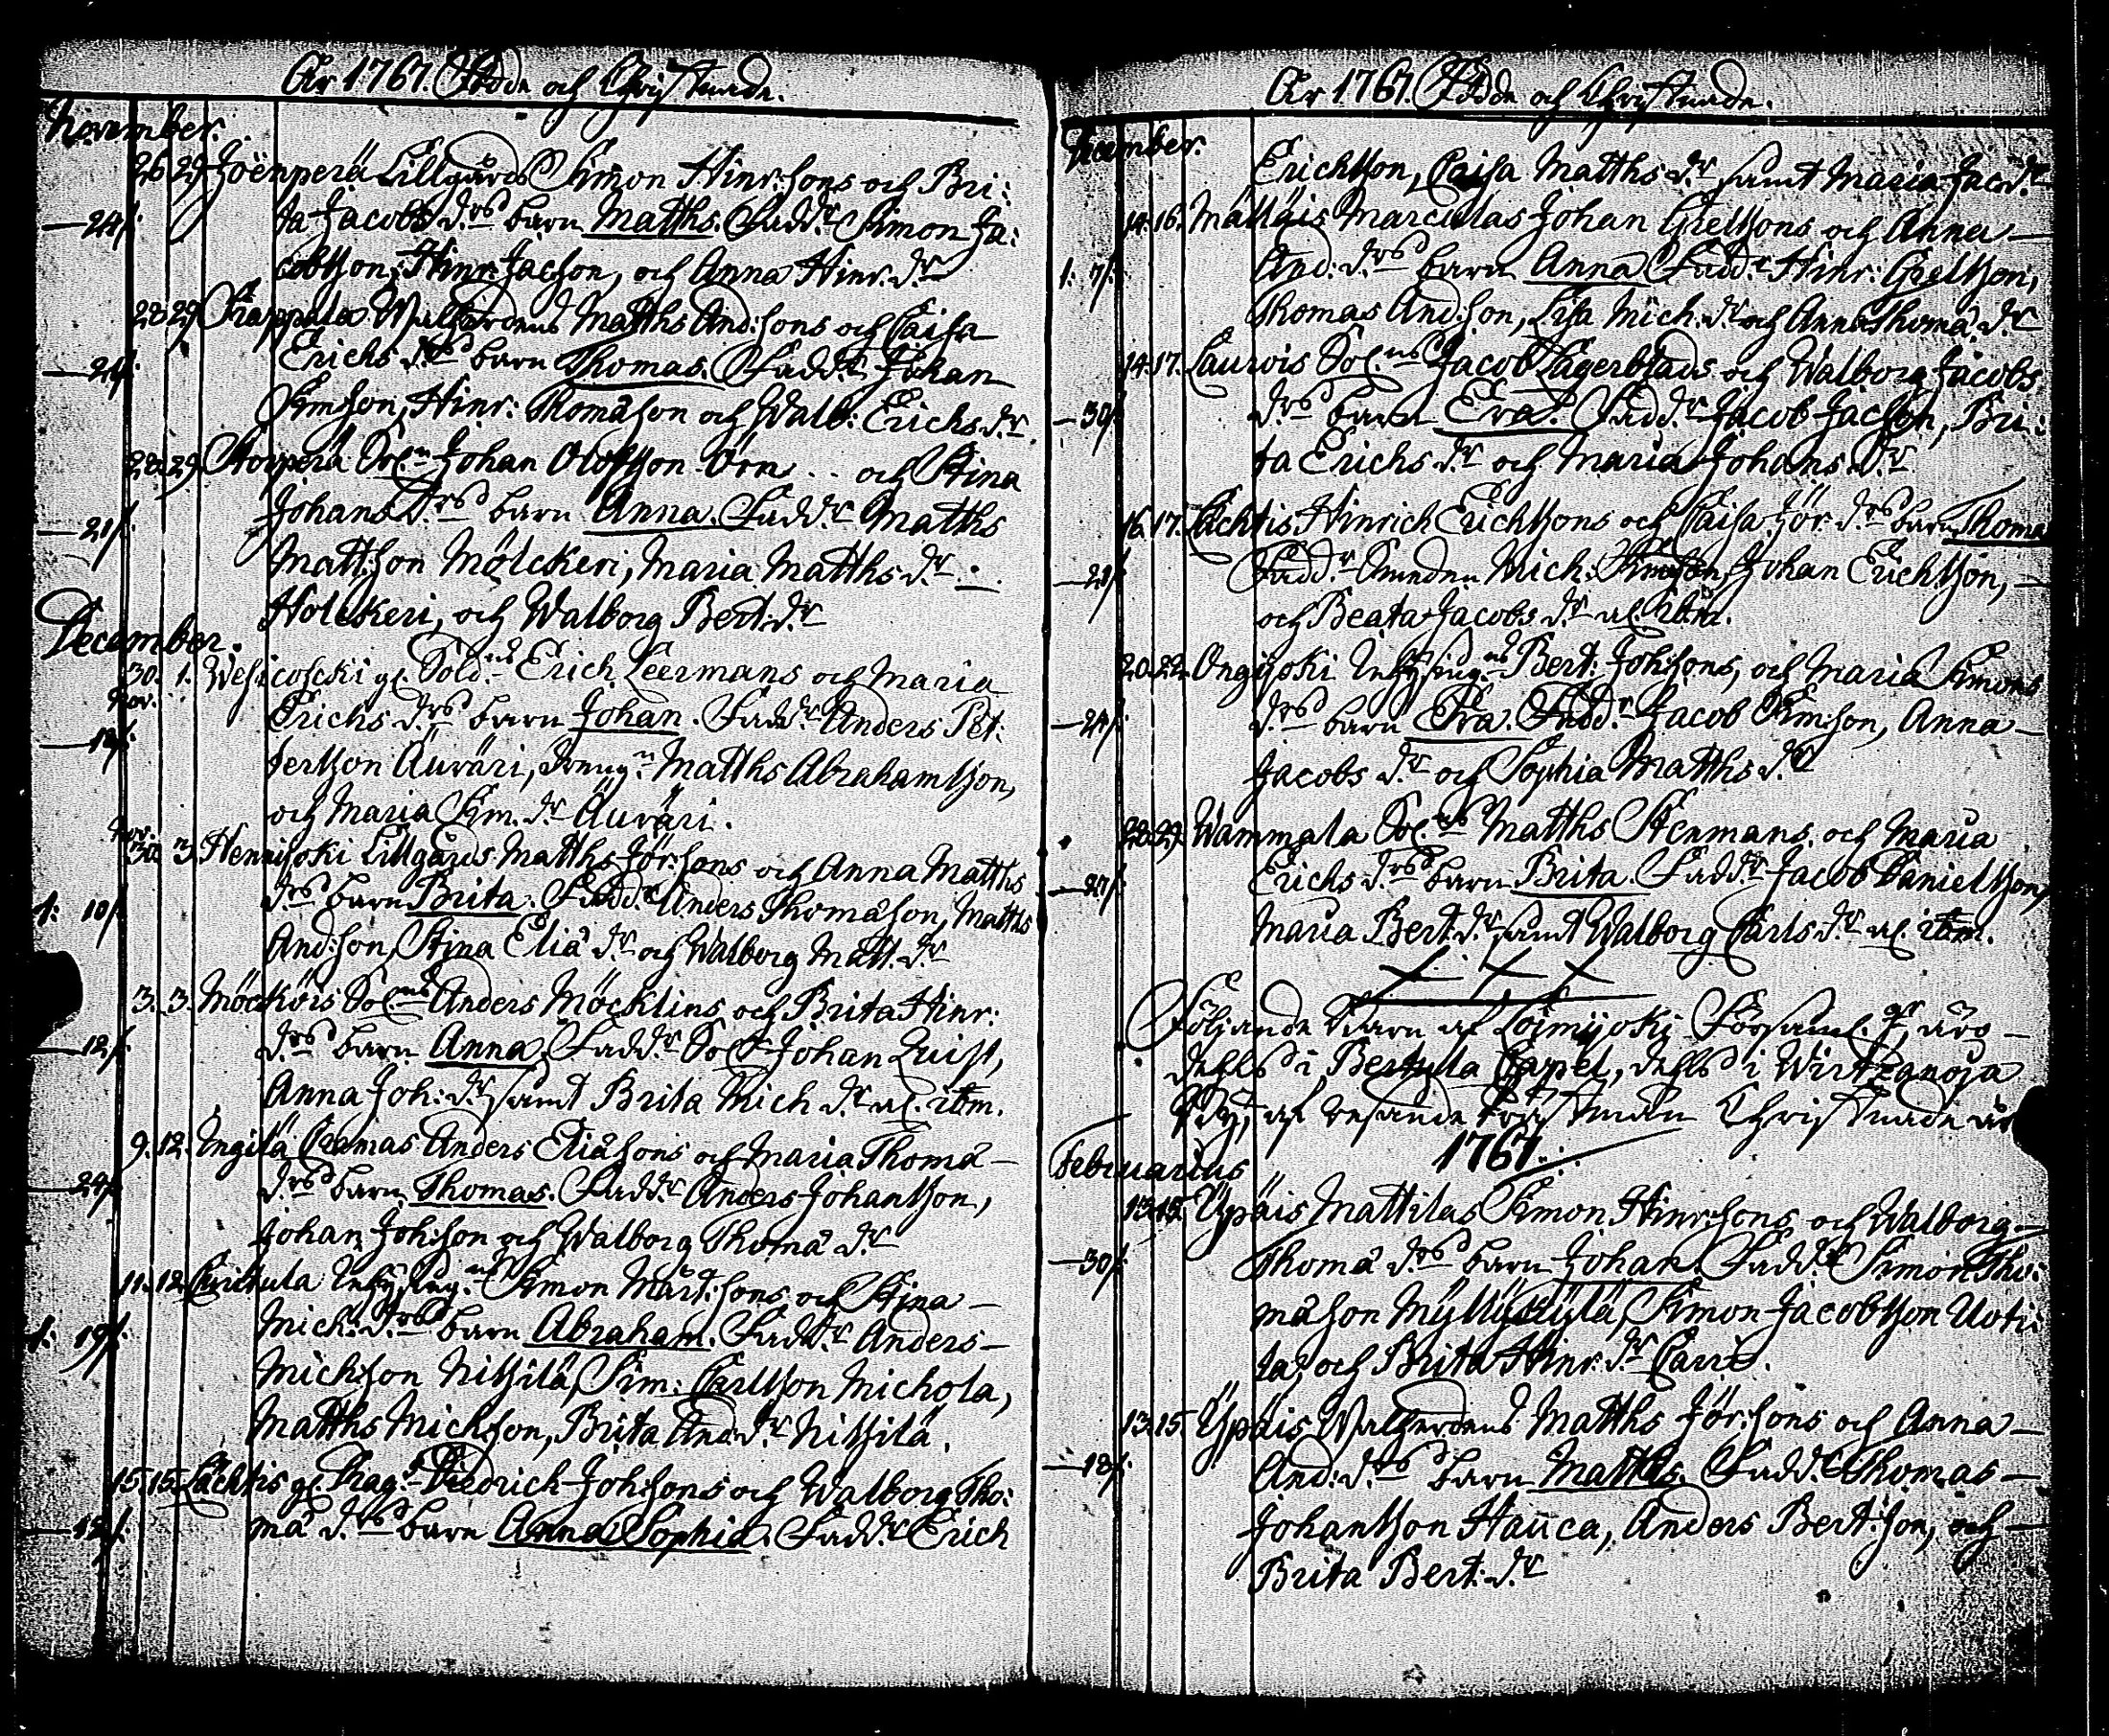 År 1767. Födde och Christnade.
November.
26. 29. Joenperä Lillgårds Simon Hinr:sons och Bri:
— 24/. ta Jacobs d:rs barn Matths. Fadd:r Simon Ja:
cobsson, Hinr: Jacson, och Anna Hinr. d:r
28. 29. Matths And:sons och Caisa
— 24/. Erichs d:rs barn Thomas. Fadd:r Johan
Simson, Hinr: Thomæson och Walb: Erichs d:r
28. 29. Torpera Sol:n Johan Olofsson Örn .. och Stina
— 21/. Johans d:rs barn Anna. Fadd:r Matths
Mattsson Mölckeri, Maria Matths d:r
Holckeri, och Walborg Bert: d:r
December.
30. 1. Wesicoscki gl. Sold:ns Erich Leermans och Maria
Nov.
Erichs d:rs barn Johan. Fadd:r Anders Pet:
tersson Äuväri, dreng:n Matths Abrahamsson,
och Maria Sim. d:r Äuväri.
Nov.
30. 3. Hennijoki Lillgårds Matths Jör:sons och Anna Matths
1: 10/. d:rs barn Brita. Fadd:r Anders Thomæson, Matths
And:son, Stina Eliæ d:r och Walborg Matt. d:r
3. 3. Möckörs Sol:ns Anders Möcklins och Brita Hinr:
— 12/. d:rs barn Anna. Fadd:r Sol:t Johan Quist,
Anna Joh: d:r samt Brita Mich d:r al. ibm.
9. 12. Ingilä Anders Eliæsons och Maria Thomæ —
— 24/. d:rs barn Thomas. Fadd:r Anders Johansson,
Johan Joh:son och Walborg Thomæ d:r
11. 12. Simon Mårt:sons och Stina —
1: 19/. Mich: d:rs barn Abraham. Fadd:r Anders —
Michson Nitsilä, Sim: Carlsson Michola,
Matths Michson, Brita And: d:r Nitsilä.
15. 15. Lächtis gl. Drag:s Diedrich Joh:sons och Walborg Tho:
mæ d:rs barn Anna Sophia. Fadd:r Erich
År 1767. Födde och Christnade.
December.
Erichsson, Caisa Matths d:r samt Maria Jac d:r
14. 16. Mälläis Marcutas Johan Grelsons och Anna —
1: 7/. And: d:rs barn Anna Fadd:r Hinr: Grelsson,
Thomas And:son, Lisa Mich: d:r och Anna Thomæ d:r
14. 17. Laurois Sol:ns Jacob Lagerblads och Walborg Jacobs
— 30/. d:rs barn Eva. Fadd:r Jacob Jacson, Bri:
ta Erichs d:r och Maria Johans d:r
16. 17. Lächtis Hinrich Erichsons och Caisa Jör: d:rs barn Thomas
Fadd:r Mich: Simson, Johan Erichsson, —
och Beata Jacobs d:r al. ibm.
20. 22. Ongijoki Inhysing:ns Bert: Joh:sons, och Maria Simons
— 24/. d:rs barn Eva. Fadd:r Jacob Simson, Anna —
Jacobs d:r och Sophia Matths d:r
28. 29. Wammala Sol:ns Matths Stenmans, och Maria
— 27/. Erichs d:rs barn Brita. Fadd:r Jacob Danielsson,
Maria Bert: d:r samt Walborg Carls d:r al. ibm.
Följande Barn af Loimijoki Församl. äro —
dehls i Bertula Capel, dehls i Wirtzanoja
By, af resande Prästmän Christnade år
1767.
Februarius
13. 15. Ypäis Mattilas Simon Hinr:sons och Walborg —
— 30/. Thomæ d:rs barn Johan. Fadd:r Simon Tho:
mæson Myllykylä, Simon Jacobsson Uoti:
la, och Brita Hinr: d:r Carri.
13. 15. Ypäis Matths Jör:sons och Anna —
— 18/. And: d:rs barn Matths. Fadd:r Thomas —
Johansson Hauca, Anders Bert:son, och —
Brita Bert: d:r